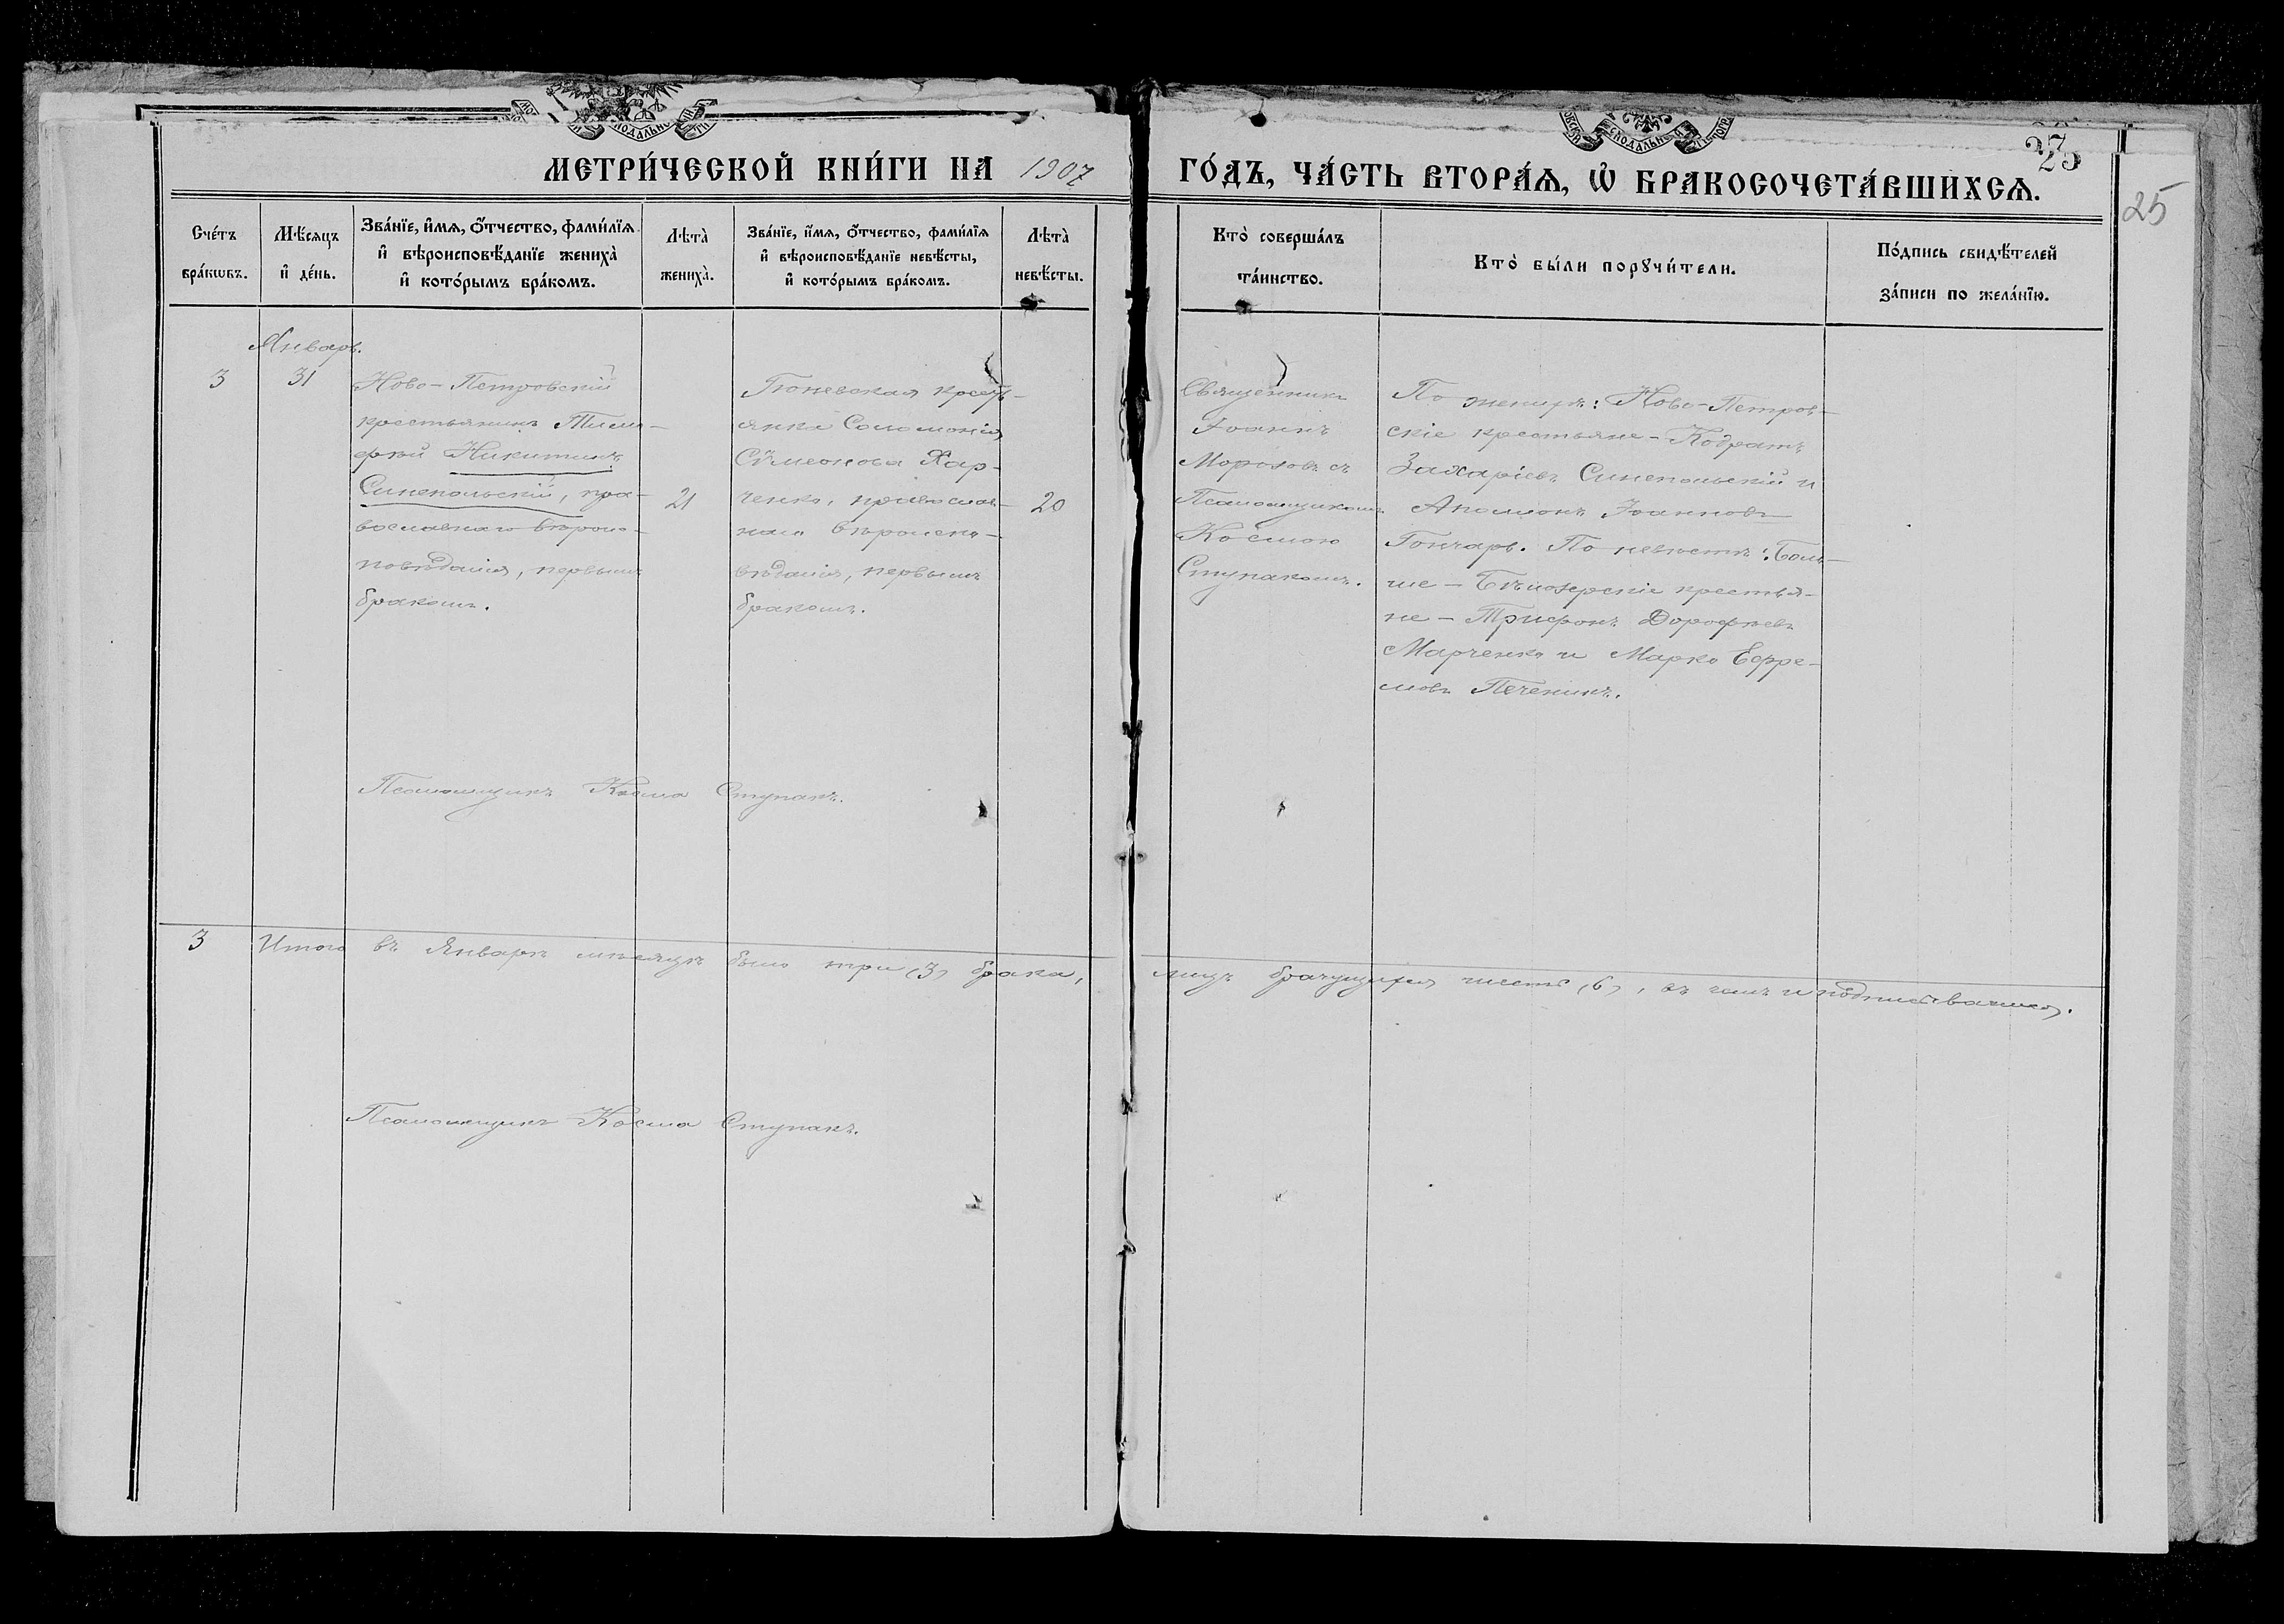 МЕТРИ́ЧЕСКОЙ КНИ́ГИ НА 1907 ГО́ДЪ, ЧА́СТЬ ВТОРА́Я, Ѡ БРАКОСОЧЕТА́ВШИХСЯ.
25
Сче́тъ бра́кѡвъ.
Мѣ́сяцъ и де́нь.
Зва́нїе, и́мя, о́тчество, фами́лїя и вѣроисповѣ́данїе жениха̀ и кото́рымъ бра́комъ.
Лѣта̀ жениха̀.
Зва́нїе, и́мя, о́тчество, фами́лїя и вѣроисповѣ́данїе невѣ́сты, и кото́рымъ бра́комъ.
Лѣта̀ невѣ́сты.
Кто̀ соверша́лъ та́инство.
Кто̀ бы́ли порꙋчи́тели.
По́дпись свидѣ́телей за́писи по жела́нїю.
Январь.
3
31
Ново-Петровскій
крестьянинъ Тимо-
фей Никитинъ
Синепольскій, пра-
вославнаго вѣроис-
повѣданія, первымъ
бракомъ.
21
крестъ-
янка Соломонія
Сѵмеонова Хар-
ченко, православ-
наго вѣроиспо-
вѣданія, первымъ
бракомъ.
20
Священникъ
Іоаннъ
Морозовъ съ
Псаломщикомъ
Космою
Ступакомъ.
По женихѣ: Ново-Петров-
скіе крестьяне - Кодратъ
Захаріевъ Синепольскій и
Іоанновъ
Гончаръ. По невѣстѣ: Боль-
ше - Бѣлозерскіе крестья-
не - Трифонъ Дорофѣевъ
Марченко и Марко Ефре-
мовъ Печенинъ.
Псаломщикъ Косма Ступакъ.
3 Итого въ Январѣ мѣсяцѣ было три (3) брака, лицъ брачущихся шесть (6), въ чемъ и подписываемся.
Псаломщикъ Косма Ступакъ.